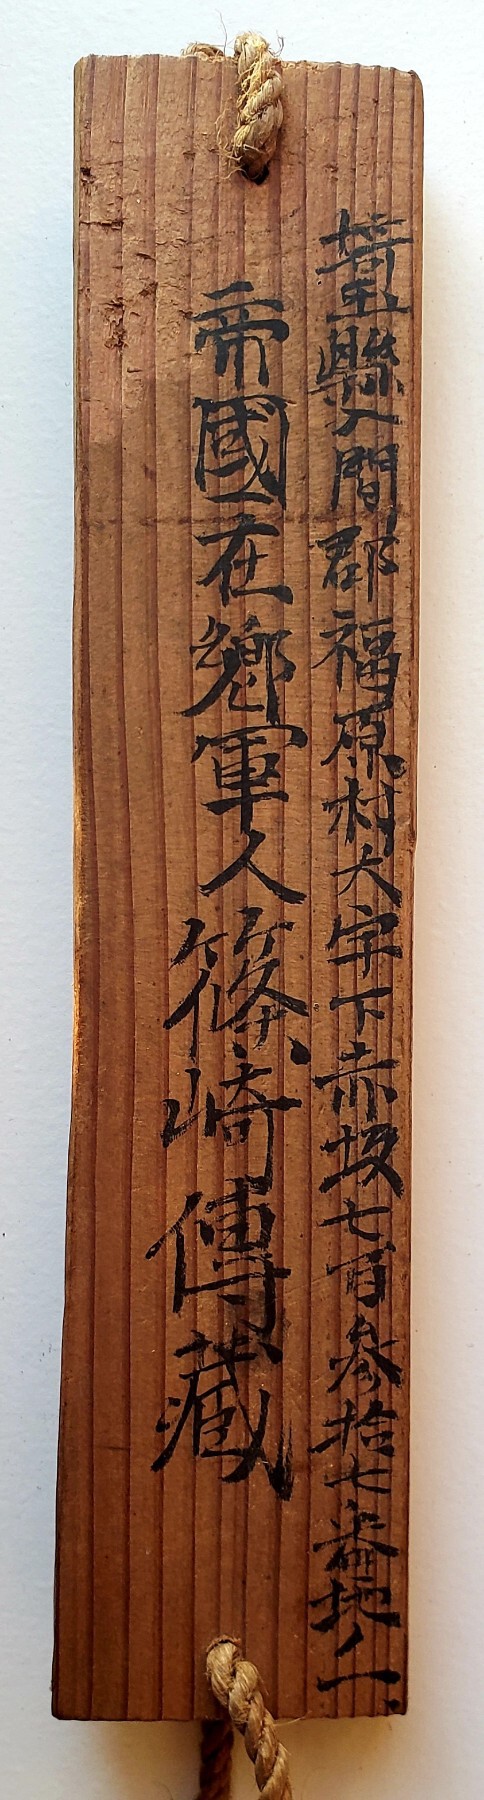 埼玉縣入間郡福原村大字下赤坂七百参拾七番地ノ一
帝國在郷軍人篠崎傳藏